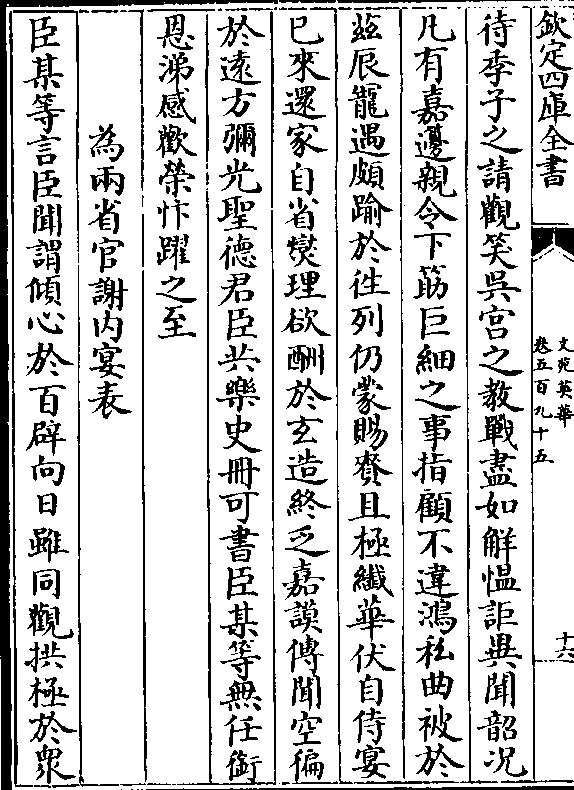 欽定四庫全書
文苑英華
卷五百九十五
十六
待季子之請觀笑吳宫之教戰盡如解愠詎異聞韶况
凡有嘉邊親令下筯巨細之事指顧不違鴻私曲被於
兹辰寵遇頗踰於徃列仍蒙賜賚且極纎華伏自侍宴
已來還家自省爕理欲酬於玄造終乏嘉謨傅聞空徧
於逺方彌光聖德君臣共樂史冊可書臣某等無任銜
恩涕感歡榮忭躍之至
為兩省官謝内宴表
臣某等言臣聞謂傾心於百辟向日雖同觀拱極於衆